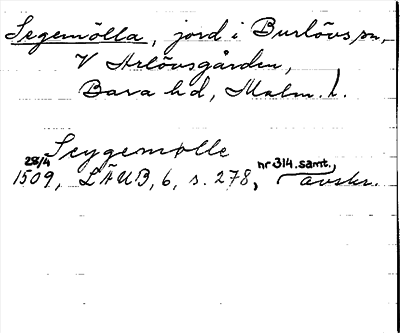 Segemölla, jord i Burlövs sn,
V Arlövsgården,
Bara hd, Malm. l.
Seygemølle
28/4 1509, LÄUB, 6, s. 278, nr 314. samt. avskr.